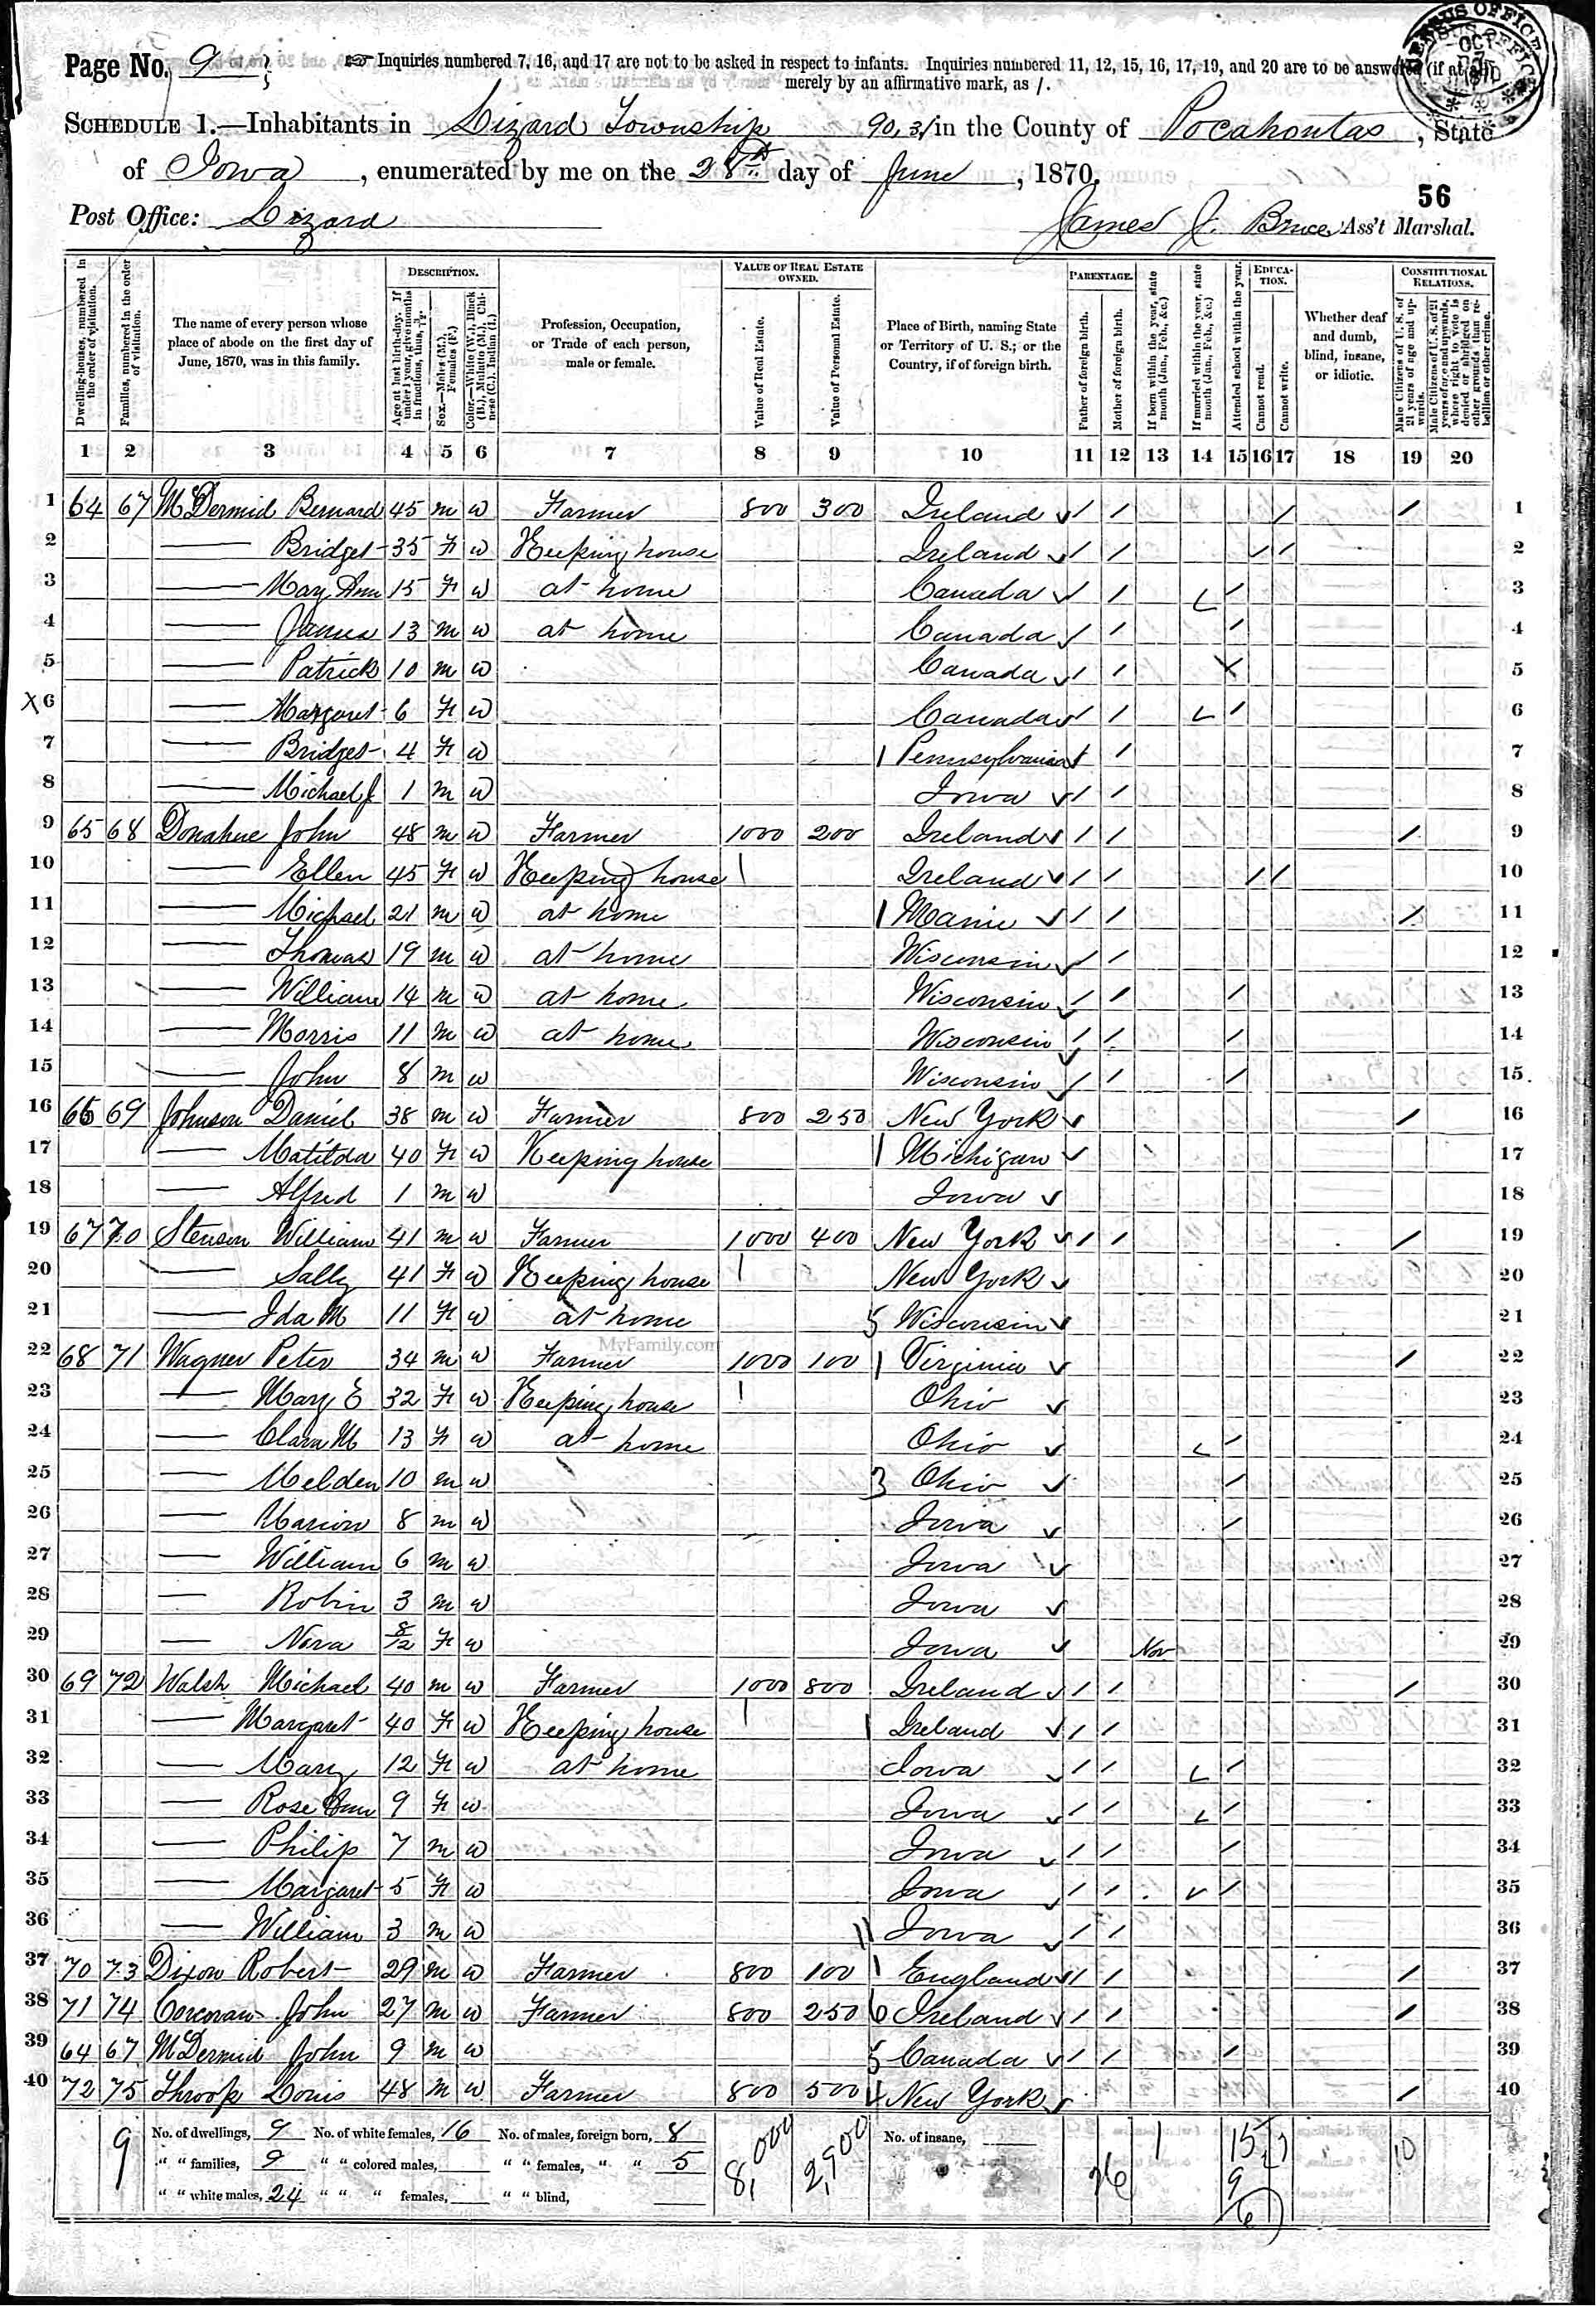 Page No. 9
Inquiries numbered 7, 16, and 17 are not to be asked in respect to infants. Inquiries numbered 11, 12, 15, 16, 17, 19, and 20 are to be answered (if at all)
merely by an affirmative mark, as /.
SCHEDULE 1.—Inhabitants in Lizard Township 90, 31 in the County of Pocahontas, State
of Iowa, enumerated by me on the 28th day of June, 1870.
56
Post Office: Lizard James J. Bruce Ass't Marshal.
Dwelling-houses, numbered in the order of visitation.
Families, numbered in the order of visitation.
The name of every person whose place of abode on the first day of June, 1870, was in this family.
DESCRIPTION.
Age at last birth-day. If under 1 year, give months in fractions, thus, 3/12.
Sex.—Males (M.), Females (F.)
Color.—White (W.), Black (B.), Mulatto (M.), Chinese (C.), Indian (I.)
Profession, Occupation, or Trade of each person, male or female.
VALUE OF REAL ESTATE OWNED.
Value of Real Estate.
Value of Personal Estate.
Place of Birth, naming State or Territory of U. S.; or the Country, if of foreign birth.
PARENTAGE.
Father of foreign birth.
Mother of foreign birth.
If born within the year, state month (Jan., Feb., &c.)
If married within the year, state month (Jan., Feb., &c.)
Attended school within the year.
EDUCATION.
Cannot read.
Cannot write.
Whether deaf and dumb, blind, insane, or idiotic.
CONSTITUTIONAL RELATIONS.
Male Citizens of U. S. of 21 years of age and upwards.
Male Citizens of U. S. of 21 years of age and upwards, whose right to vote is denied or abridged on other grounds than rebellion or other crime.
1 2 3 4 5 6 7 8 9 10 11 12 13 14 15 16 17 18 19 20
1 64 67 McDermid Bernard 45 m w Farmer 800 300 Ireland / / / / 1
2 — Bridget 35 F w Keeping house Ireland / / / / 2
3 — Mary Ann 15 F w at home Canada / / / 3
4 — James 13 m w at home Canada / / / 4
5 — Patrick 10 m w Canada / / X 5
X 6 — Margaret 6 F w Canada / / / 6
7 — Bridget 4 F w 1 Pennsylvania / / 7
8 — Michael J 1 m w Iowa / / 8
9 65 68 Donahue John 48 m w Farmer 1000 200 Ireland / / / 9
10 — Ellen 45 F w Keeping house Ireland / / / / 10
11 — Michael 21 m w at home 1 Maine / / / 11
12 — Thomas 19 m w at home Wisconsin / / 12
13 — William 14 m w at home Wisconsin / / / 13
14 — Morris 11 m w at home Wisconsin / / / 14
15 — John 8 m w Wisconsin / / / 15
16 66 69 Johnson Daniel 38 m w Farmer 800 250 New York / 16
17 — Matilda 40 F w Keeping house 1 Michigan 17
18 — Alfred 1 m w Iowa 18
19 67 70 Stenson William 41 m w Farmer 1000 400 New York / / / 19
20 — Sally 41 F w Keeping house New York 20
21 — Ida M 11 F w at home 5 Wisconsin 21
MyFamily.com
22 68 71 Wagner Peter 34 m w Farmer 1000 100 1 Virginia / 22
23 — Mary E 32 F w Keeping house Ohio 23
24 — Clara M 13 F w at home Ohio / 24
25 — Melden 10 m w 3 Ohio / 25
26 — Marion 8 m w Iowa / 26
27 — William 6 m w Iowa 27
28 — Robin 3 m w Iowa 28
29 — Nora 8/12 F w Iowa Nov 29
30 69 72 Walsh Michael 40 m w Farmer 1000 800 Ireland / / / 30
31 — Margaret 40 F w Keeping house 1 Ireland / / 31
32 — Mary 12 F w at home Iowa / / / 32
33 — Rose Ann 9 F w Iowa / / / 33
34 — Philip 7 m w Iowa / / / 34
35 — Margaret 5 F w Iowa / / / 35
36 — William 3 m w 11 Iowa / / 36
37 70 73 Dixon Robert 29 m w Farmer 800 100 1 England / / / 37
38 71 74 Corcoran John 27 m w Farmer 800 250 6 Ireland / / / 38
39 64 67 McDermid John 9 m w 5 Canada / / / 39
40 72 75 Throop Louis 48 m w Farmer 800 500 4 New York / 40
9 No. of dwellings, 9 No. of white females, 16 No. of males, foreign born, 8 8,000 2,900 No. of insane, 1 15 10
" " families, 9 " " colored males, " " females, " " 5 26 9
" " white males, 24 " " " females, " " blind, 6